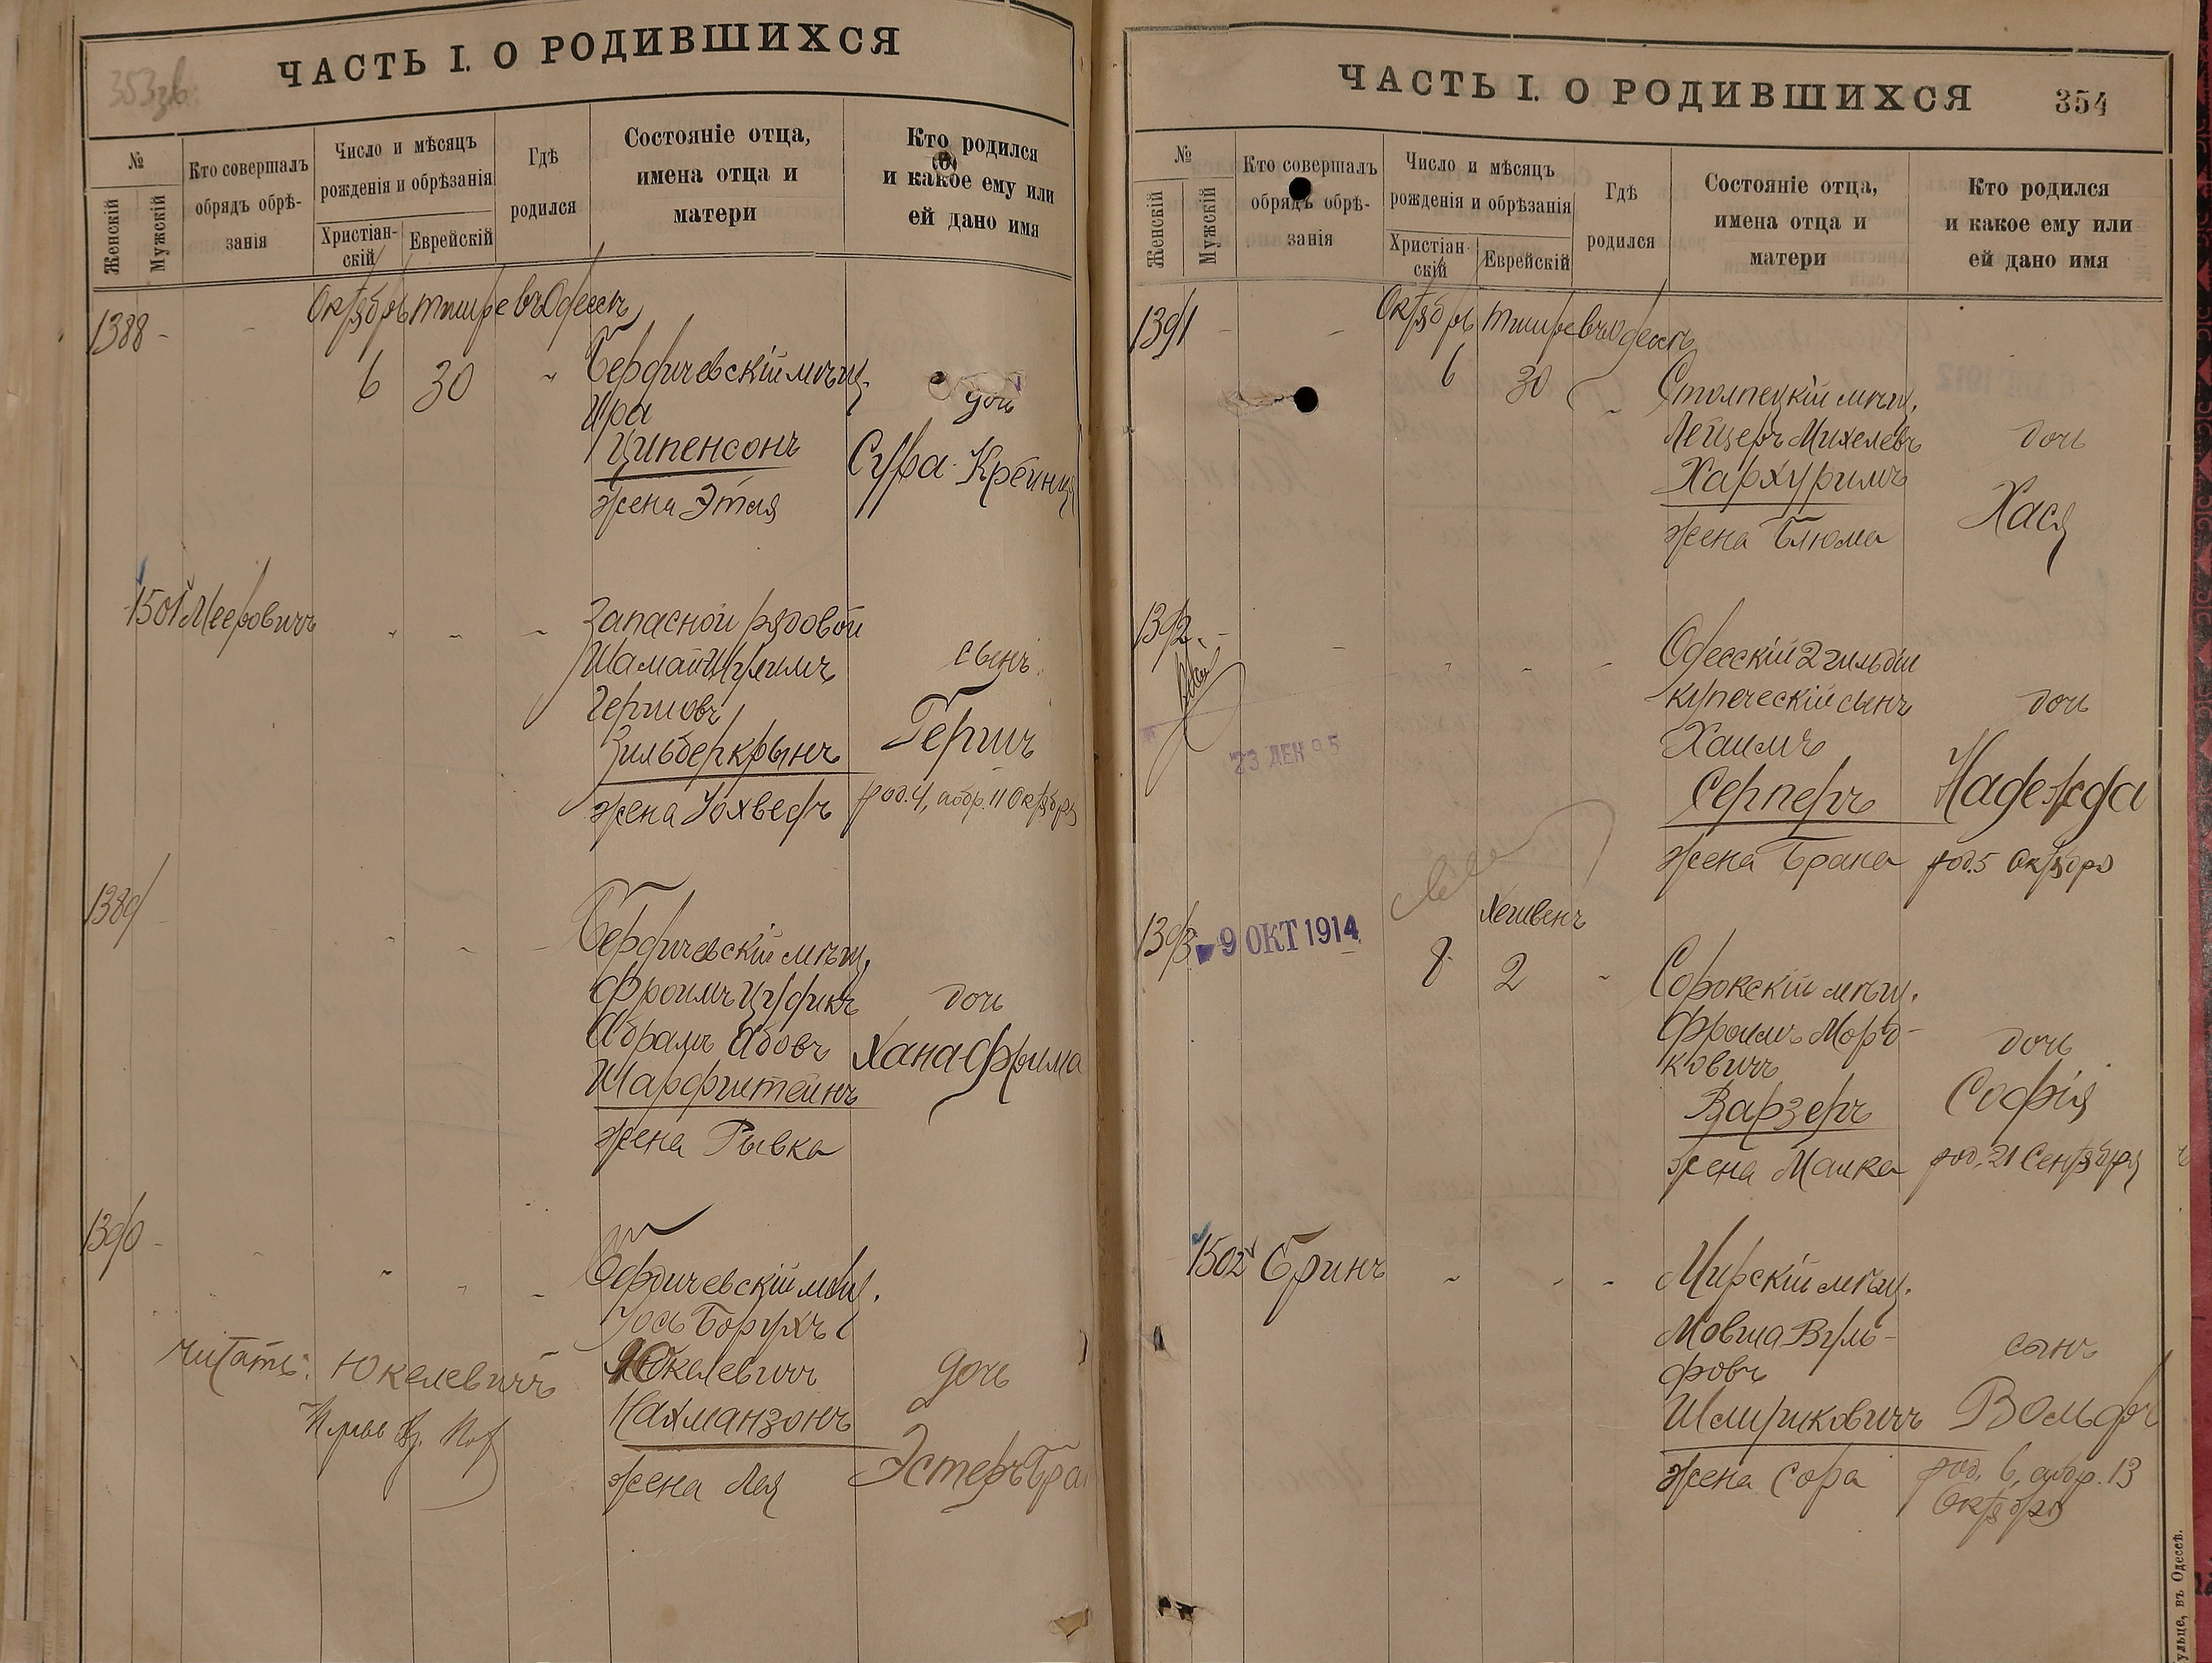 353 зв.
ЧАСТЬ I. О РОДИВШИХСЯ
№
Женскій
Мужскій
Кто совершалъ
обрядъ обрѣ-
занія
Число и мѣсяцъ
рожденія и обрѣзанія
Христіан-
скій
Еврейскій
Гдѣ
родился
Состояніе отца,
имена отца и
матери
Кто родился
и какое ему или
ей дано имя
1388 - - Октябрь тишре въ Одессѣ
6 30 " Бердичевскій мѣщ.
Ира
Ципенсонъ
жена Этля
дочь
Сура-Крейнця
1501 Мееровичъ " " " Запасной рядовой
Шамай-Шулимъ
Гершовъ
Зильберкрынъ
жена Іохведъ
сынъ
Гершъ
род. 4, а обр. 11 Октября
1389 - " " " Бердичевскій мѣщ.
Фроимъ Цудикъ
Абрамъ Абовъ
Шарфштейнъ
жена Рывка
дочь
Хана-Фрима
1390 - " " " " Бердичевскій мѣщ.
Іось Борухъ
Юкелевичъ
Нахманзонъ
жена Лея
дочь
Эстеръ Бра
читать: Юкелевичъ
ЧАСТЬ I. О РОДИВШИХСЯ
354
№
Женскій
Мужскій
Кто совершалъ
обрядъ обрѣ-
занія
Число и мѣсяцъ
рожденія и обрѣзанія
Христіан-
скій
Еврейскій
Гдѣ
родился
Состояніе отца,
имена отца и
матери
Кто родился
и какое ему или
ей дано имя
1391 - - Октябрь тишре въ Одессѣ
6 30 " Столпецкій мѣщ.
Лейзеръ Михелевъ
Хархуримъ
жена Блюма
дочь
Хася
1392. - - " " " Одесскій 2 гильдіи
купеческій сынъ
Хаимъ
Серперъ
жена Брана
дочь
Надежда
род. 5 Октября
23 ДЕК 95
1393 - 9 ОКТ 1914
Хешвенъ
8 2 " Сорокскій мѣщ.
Фроимъ Морд-
ковичъ
Варзеръ
жена Малка
дочь
Софія
род. 21 Сентября
1502 Бринъ " " " Мирскій мѣщ.
Мовша Вуль-
фовъ
Шмуриковичъ
жена Сора
сынъ
Вольфъ
род. 6, а обр. 13
Октября
ульце, въ Одессѣ.